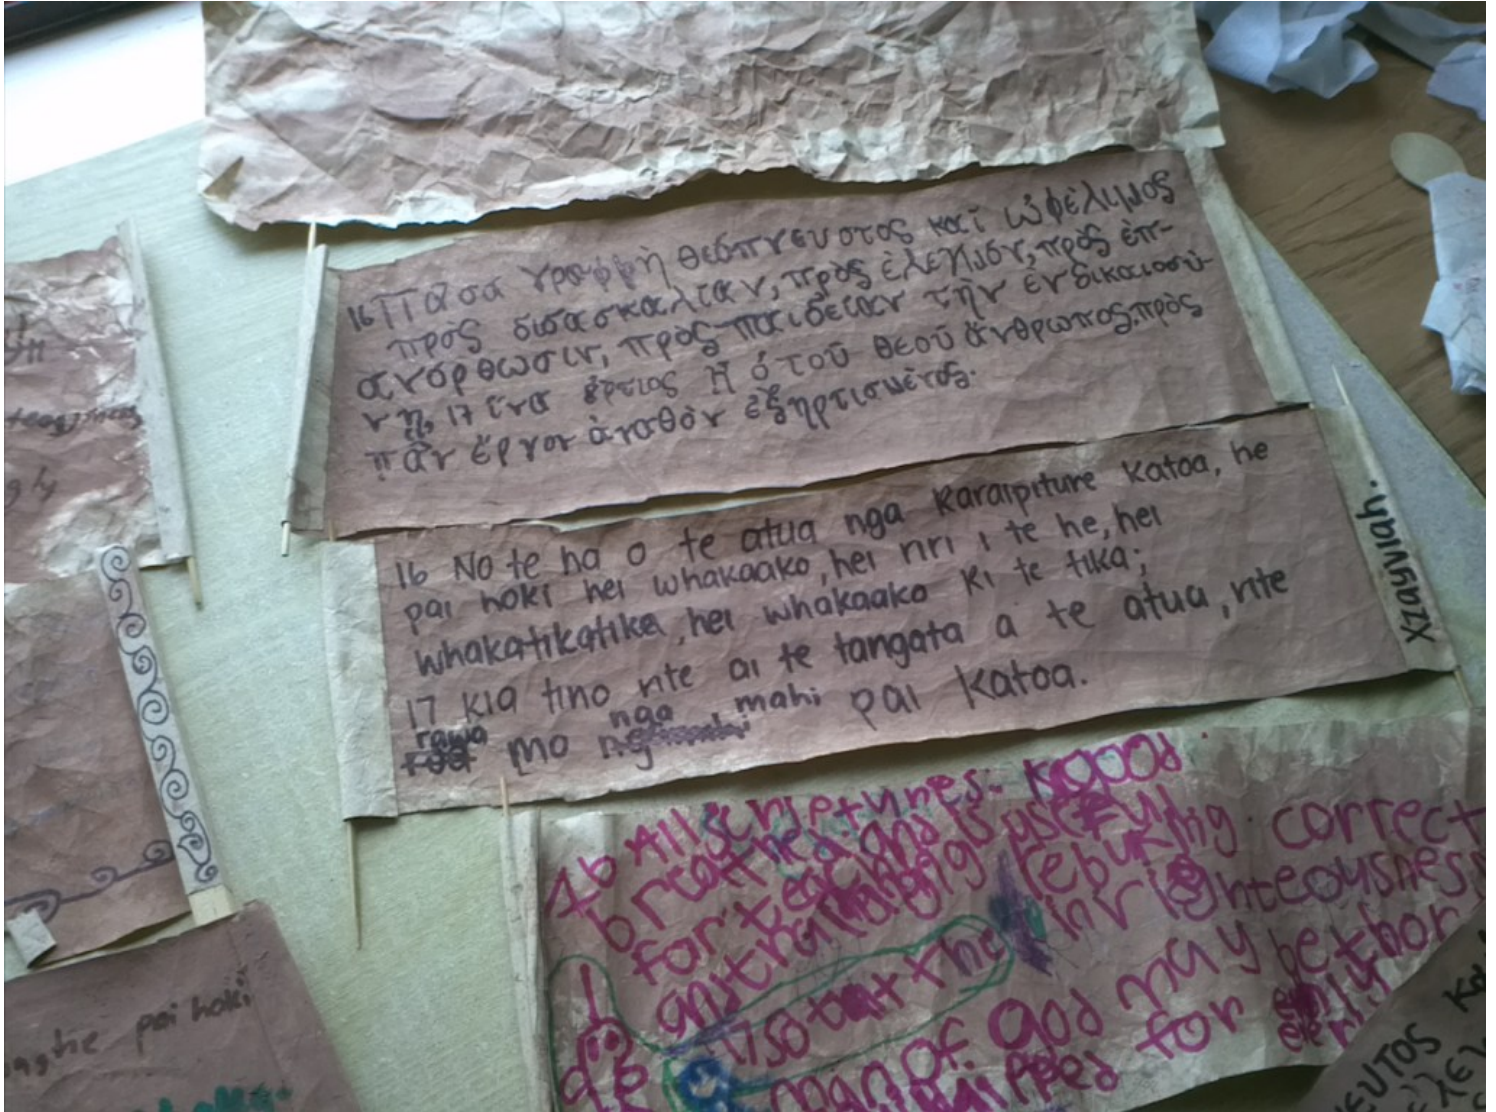 16 Πᾶσα γραφφὴ θεόπνευστος καὶ ὠφέλιμος
πρὸς διδασκαλίαν, πρὸς ἐλεγμόν, πρὸς ἐπ-
ανόρθωσιν, πρὸς παιδείαν τὴν ἐν δικαιοσύ-
νῃ, 17 ἵνα ἄρτιος ᾖ ὁ τοῦ θεοῦ ἄνθρωπος, πρὸς
πᾶν ἔργον ἀγαθὸν ἐξηρτισμένος.
16 No te ha o te atua nga Karaipiture katoa, he
pai hoki hei whakaako, hei riri i te he, hei
whakatikatika, hei whakaako ki te tika;
17 Kia tino rite ai te tangata a te atua, rite
rawa mo nga mahi pai katoa.
Xzayviah.
16 All scriptures. Good
breathed and is useful
for teaching rebuking. correct
and training in righteousness
17 so that the
man of God may be thor
for every
pai hoki